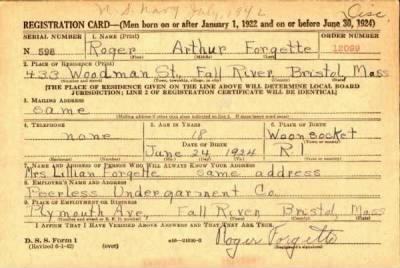 U. S. Navy July 1942
Disc.
REGISTRATION CARD—(Men born on or after January 1, 1922 and on or before June 30, 1924)
SERIAL NUMBER 1. NAME (Print) ORDER NUMBER
N 598 Roger Arthur Forgette 12099
(First) (Middle) (Last)
2. PLACE OF RESIDENCE (Print)
433 Woodman St., Fall River Bristol Mass
(Number and street) (Town, township, village, or city) (County) (State)
[THE PLACE OF RESIDENCE GIVEN ON THE LINE ABOVE WILL DETERMINE LOCAL BOARD
JURISDICTION; LINE 2 OF REGISTRATION CERTIFICATE WILL BE IDENTICAL]
3. MAILING ADDRESS
same
(Mailing address if other than place indicated on line 2. If same, insert word same)
4. TELEPHONE 5. AGE IN YEARS 6. PLACE OF BIRTH
none 18 Woonsocket
DATE OF BIRTH
June 24, 1924 R.I.
(Exchange) (Number) (Mo.) (Day) (Yr.) (State or country)
7. NAME AND ADDRESS OF PERSON WHO WILL ALWAYS KNOW YOUR ADDRESS
Mrs Lillian Forgette same address
8. EMPLOYER'S NAME AND ADDRESS
Peerless Undergarment Co.
9. PLACE OF EMPLOYMENT OR BUSINESS
Plymouth Ave, Fall River, Bristol, Mass
(Number and street or R. F. D. number) (Town) (County) (State)
I AFFIRM THAT I HAVE VERIFIED ABOVE ANSWERS AND THAT THEY ARE TRUE.
D. S. S. Form 1
(Revised 6-1-42) (over) Roger Forgette